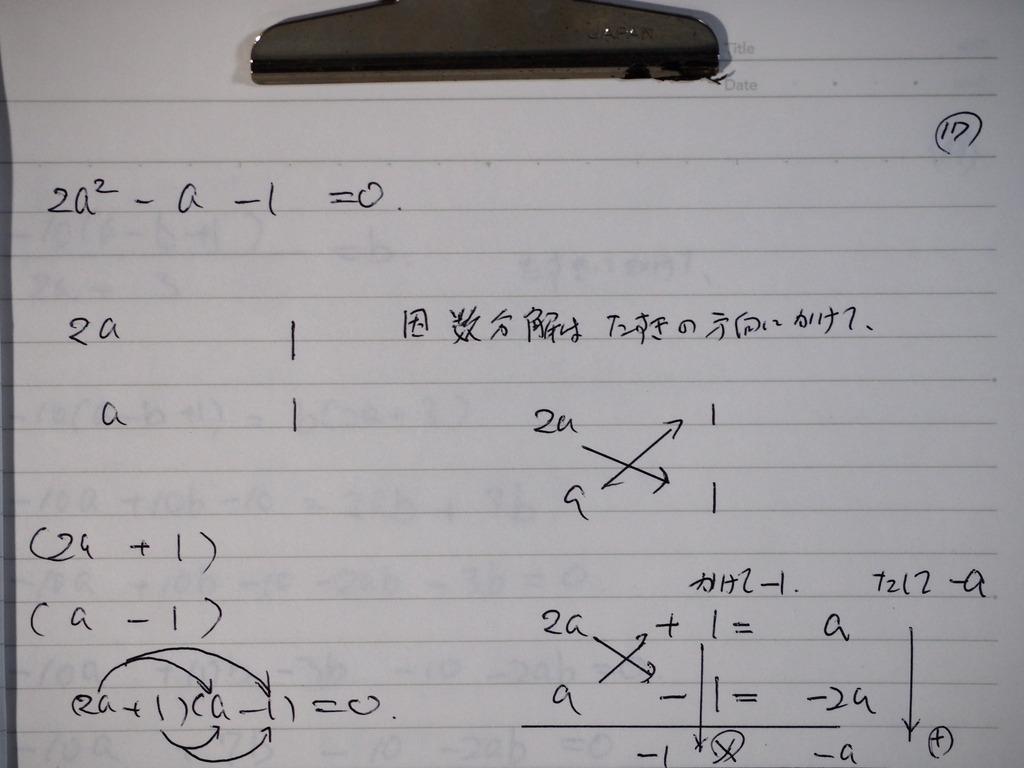 JAPAN
Title
Date
⑰
2a² - a - 1 = 0.
2a 1 因数分解は たすきの方向にかけて、
a 1
2a 1
a 1
(2a + 1)
(a - 1)
(2a+1)(a-1) = 0.
かけて-1. たして-a
2a + 1 = a
a - 1 = -2a
-1 ⊗ -a ⊕